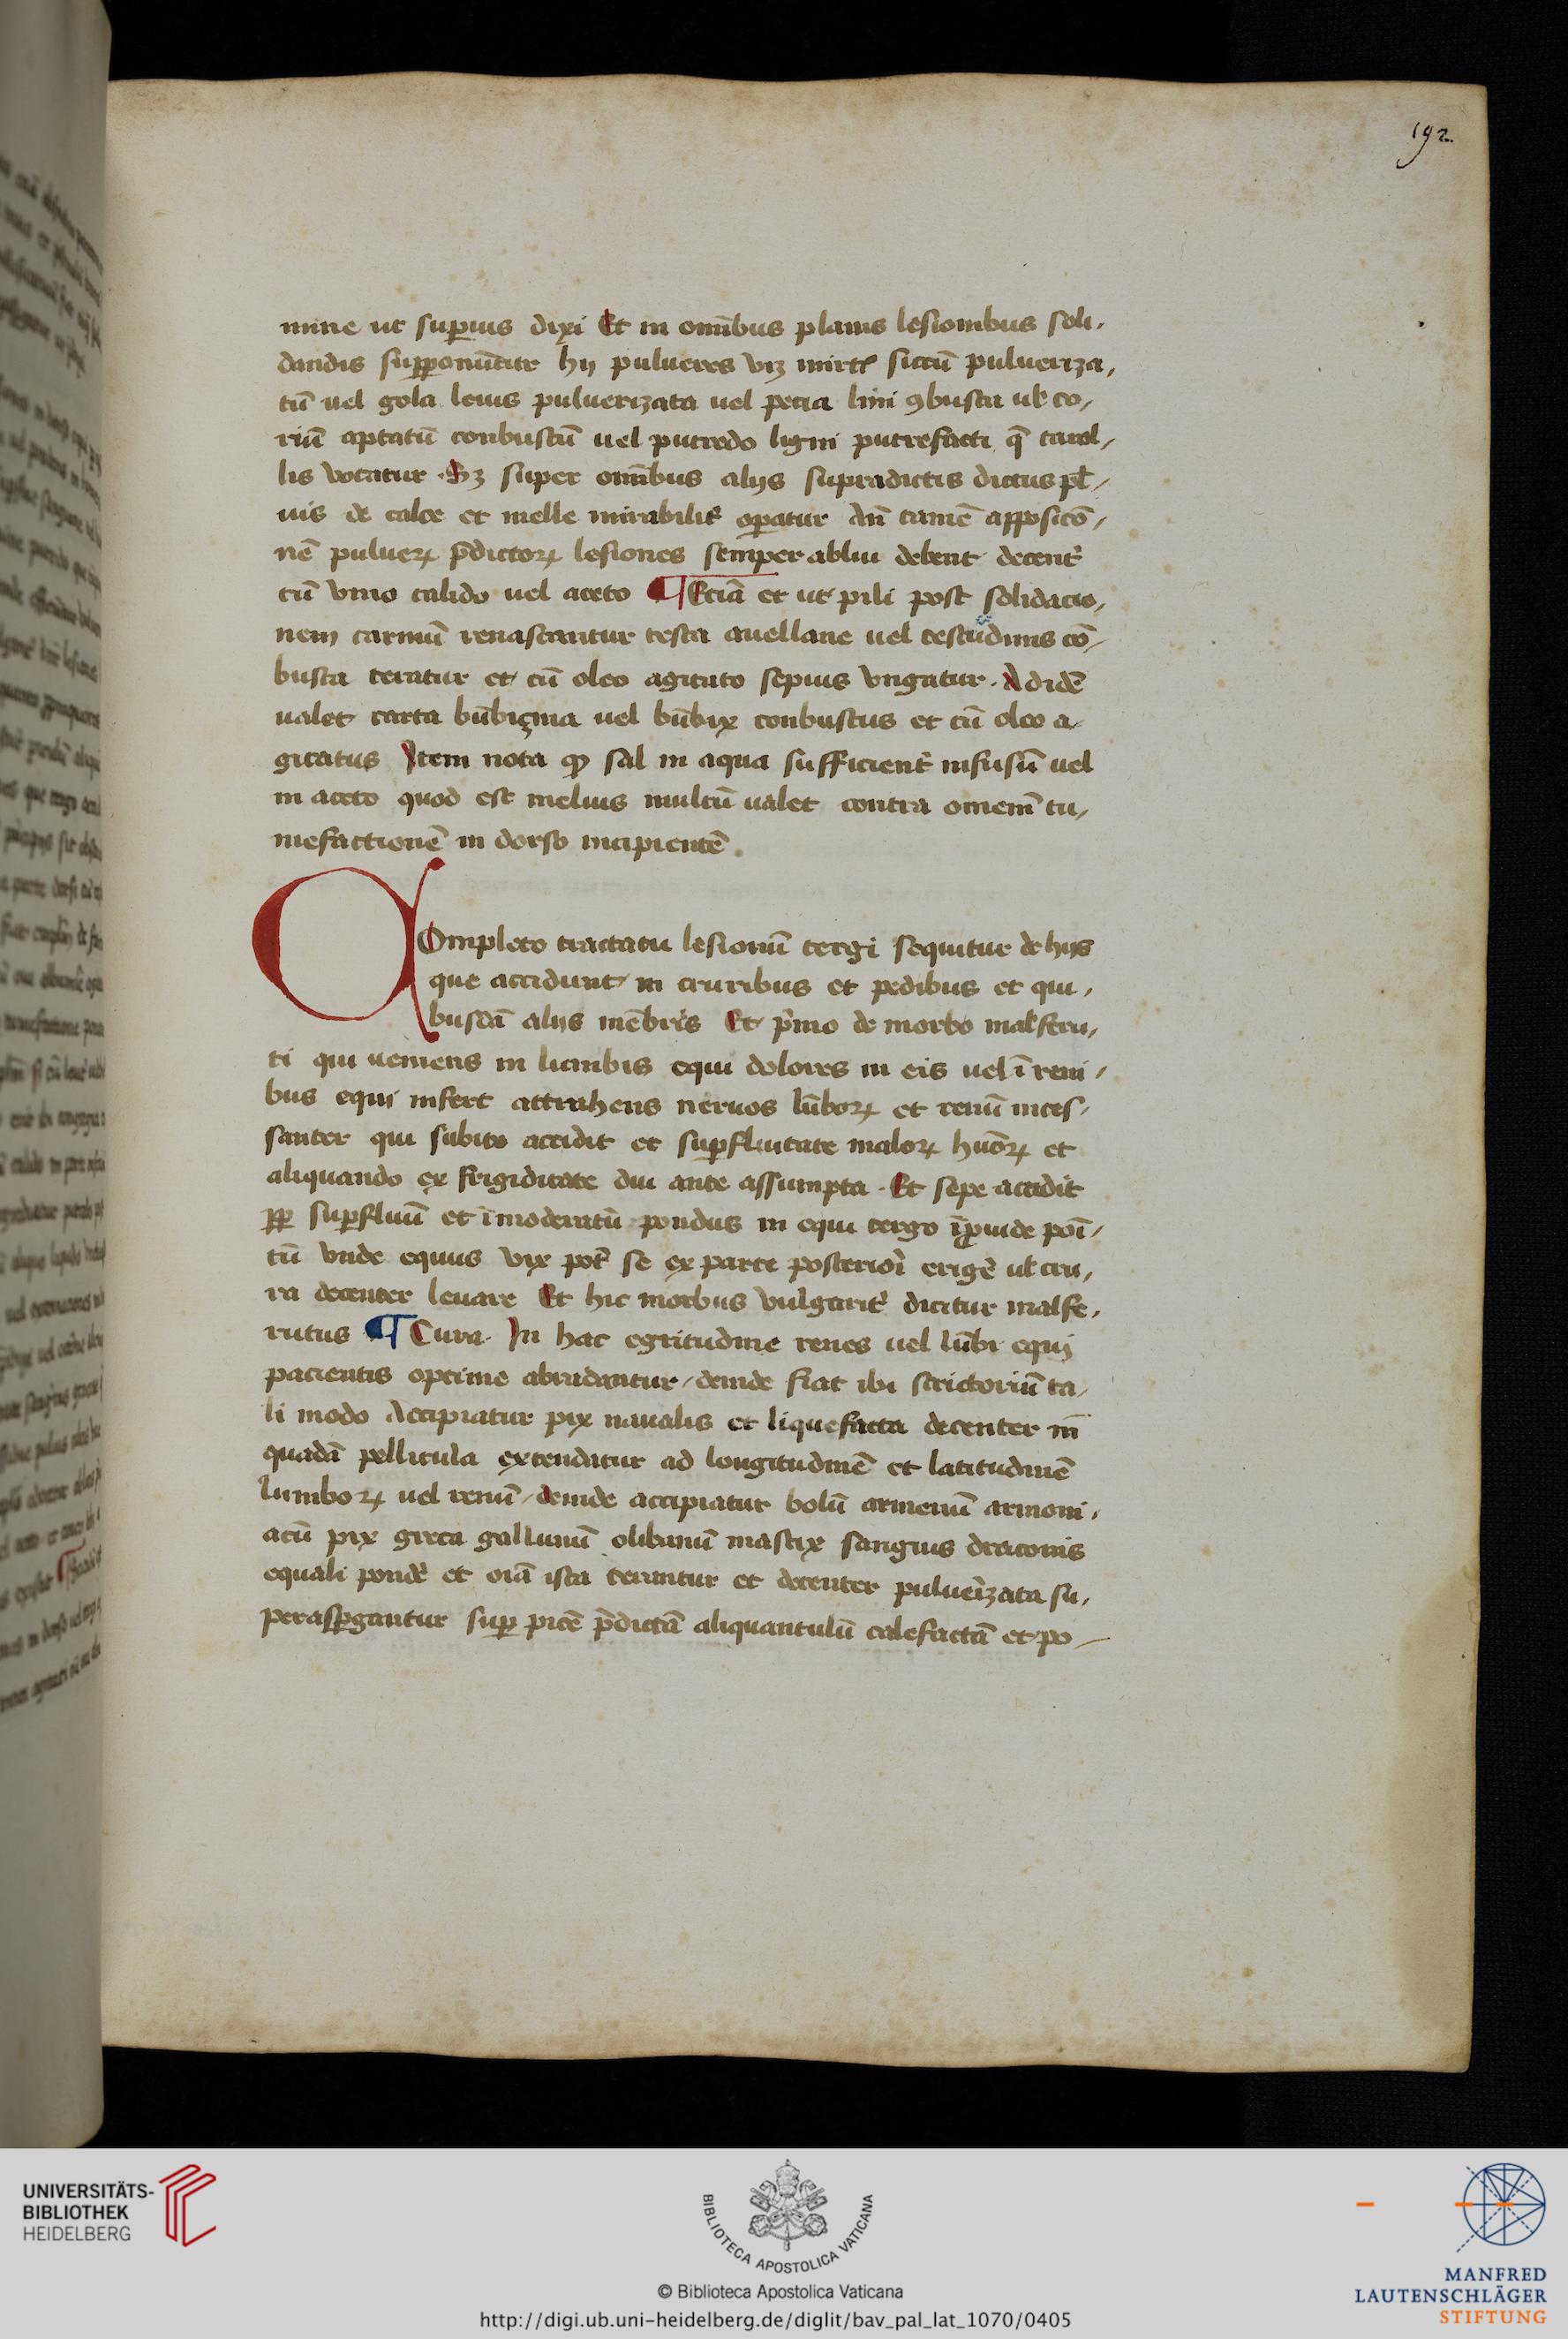 192
mine ut superius dixi Et in omībus planis lesionibus soli-
dandis supponūtur hij pulueres vꝫ mirtꝭ siccū pulueriza-
tū uel gola leuis puluerizata uel petia lini ꝯbusta ul̕ co-
riū aptatū conbustū uel putredo ligni putrefacti q̄ tarol-
lis vocatur . Sꝫ super omībus alijs supradictis dictus pl̕-
uis de calce et melle mirabilit̕ oꝑatur Añ tamē apposicō-
nē pulueꝝ p̄dictoꝝ lesiones semper ablui debent decent̕
cū vino calido uel aceto ¶ Eciā et ut pili post solidacio-
nem carniū renascantur testa auellane uel testudinis cō-
busta teratur et cū oleo agitato sepius vngatur . Ad idē
ualet carta būbiçina uel būbix conbustus et cū oleo a-
gitatus Item nota ꝙ sal in aqua sufficient̕ infusū uel
in aceto quod est melius multū ualet contra omnem̄ tu-
mefactionē in dorso incipientē .
Completo tractatu lesionū tergi sequitur de hijs
que accidunt in cruribus et pedibus et qui-
busdā alijs mēbris Et p̄mo de morbo malferu-
ti qui ueniens in lumbis equi dolores in eis uel ī reni-
bus equi infert attrahens neruos lūboꝝ et renū inces-
santer qui subito accidit et suꝑfluitate maloꝝ hūoꝝ et
aliquando ex frigiditate diu ante assumpta . Et sepe accidit
ꝓp̄ suꝑfluū et īmoderatū pondus in equi tergo īꝓuide poī-
tū vnde equus vix pot̕ se ex parte posteriori erigē ul̕ cru-
ra decenter leuare Et hic morbus vulgarit̕ dicitur malfe-
rutus ¶ Cura . In hac egritudine renes uel lūbi equi
pacientis optime abradantur / deinde fiat ibi strictoriū ta-
li modo Accipiatur pix naualis et liquefacta decenter in̄
quadā pellicula extendatur ad longitudinē et latitudinē
lumboꝝ uel renū / deinde accipiatur bolū armenū armoni-
acū pix greca galbanū olibanū mastix sanguis draconis
equali pond̕e et oīa ista terantur et decenter pulueri̕zata su-
peraspgantur suꝑ picē p̄dictā aliquantulū calefactā et po-
UNIVERSITÄTS-
BIBLIOTHEK
HEIDELBERG
BIBLIOTECA APOSTOLICA VATICANA
© Biblioteca Apostolica Vaticana
http://digi.ub.uni-heidelberg.de/diglit/bav_pal_lat_1070/0405
MANFRED
LAUTENSCHLÄGER
STIFTUNG